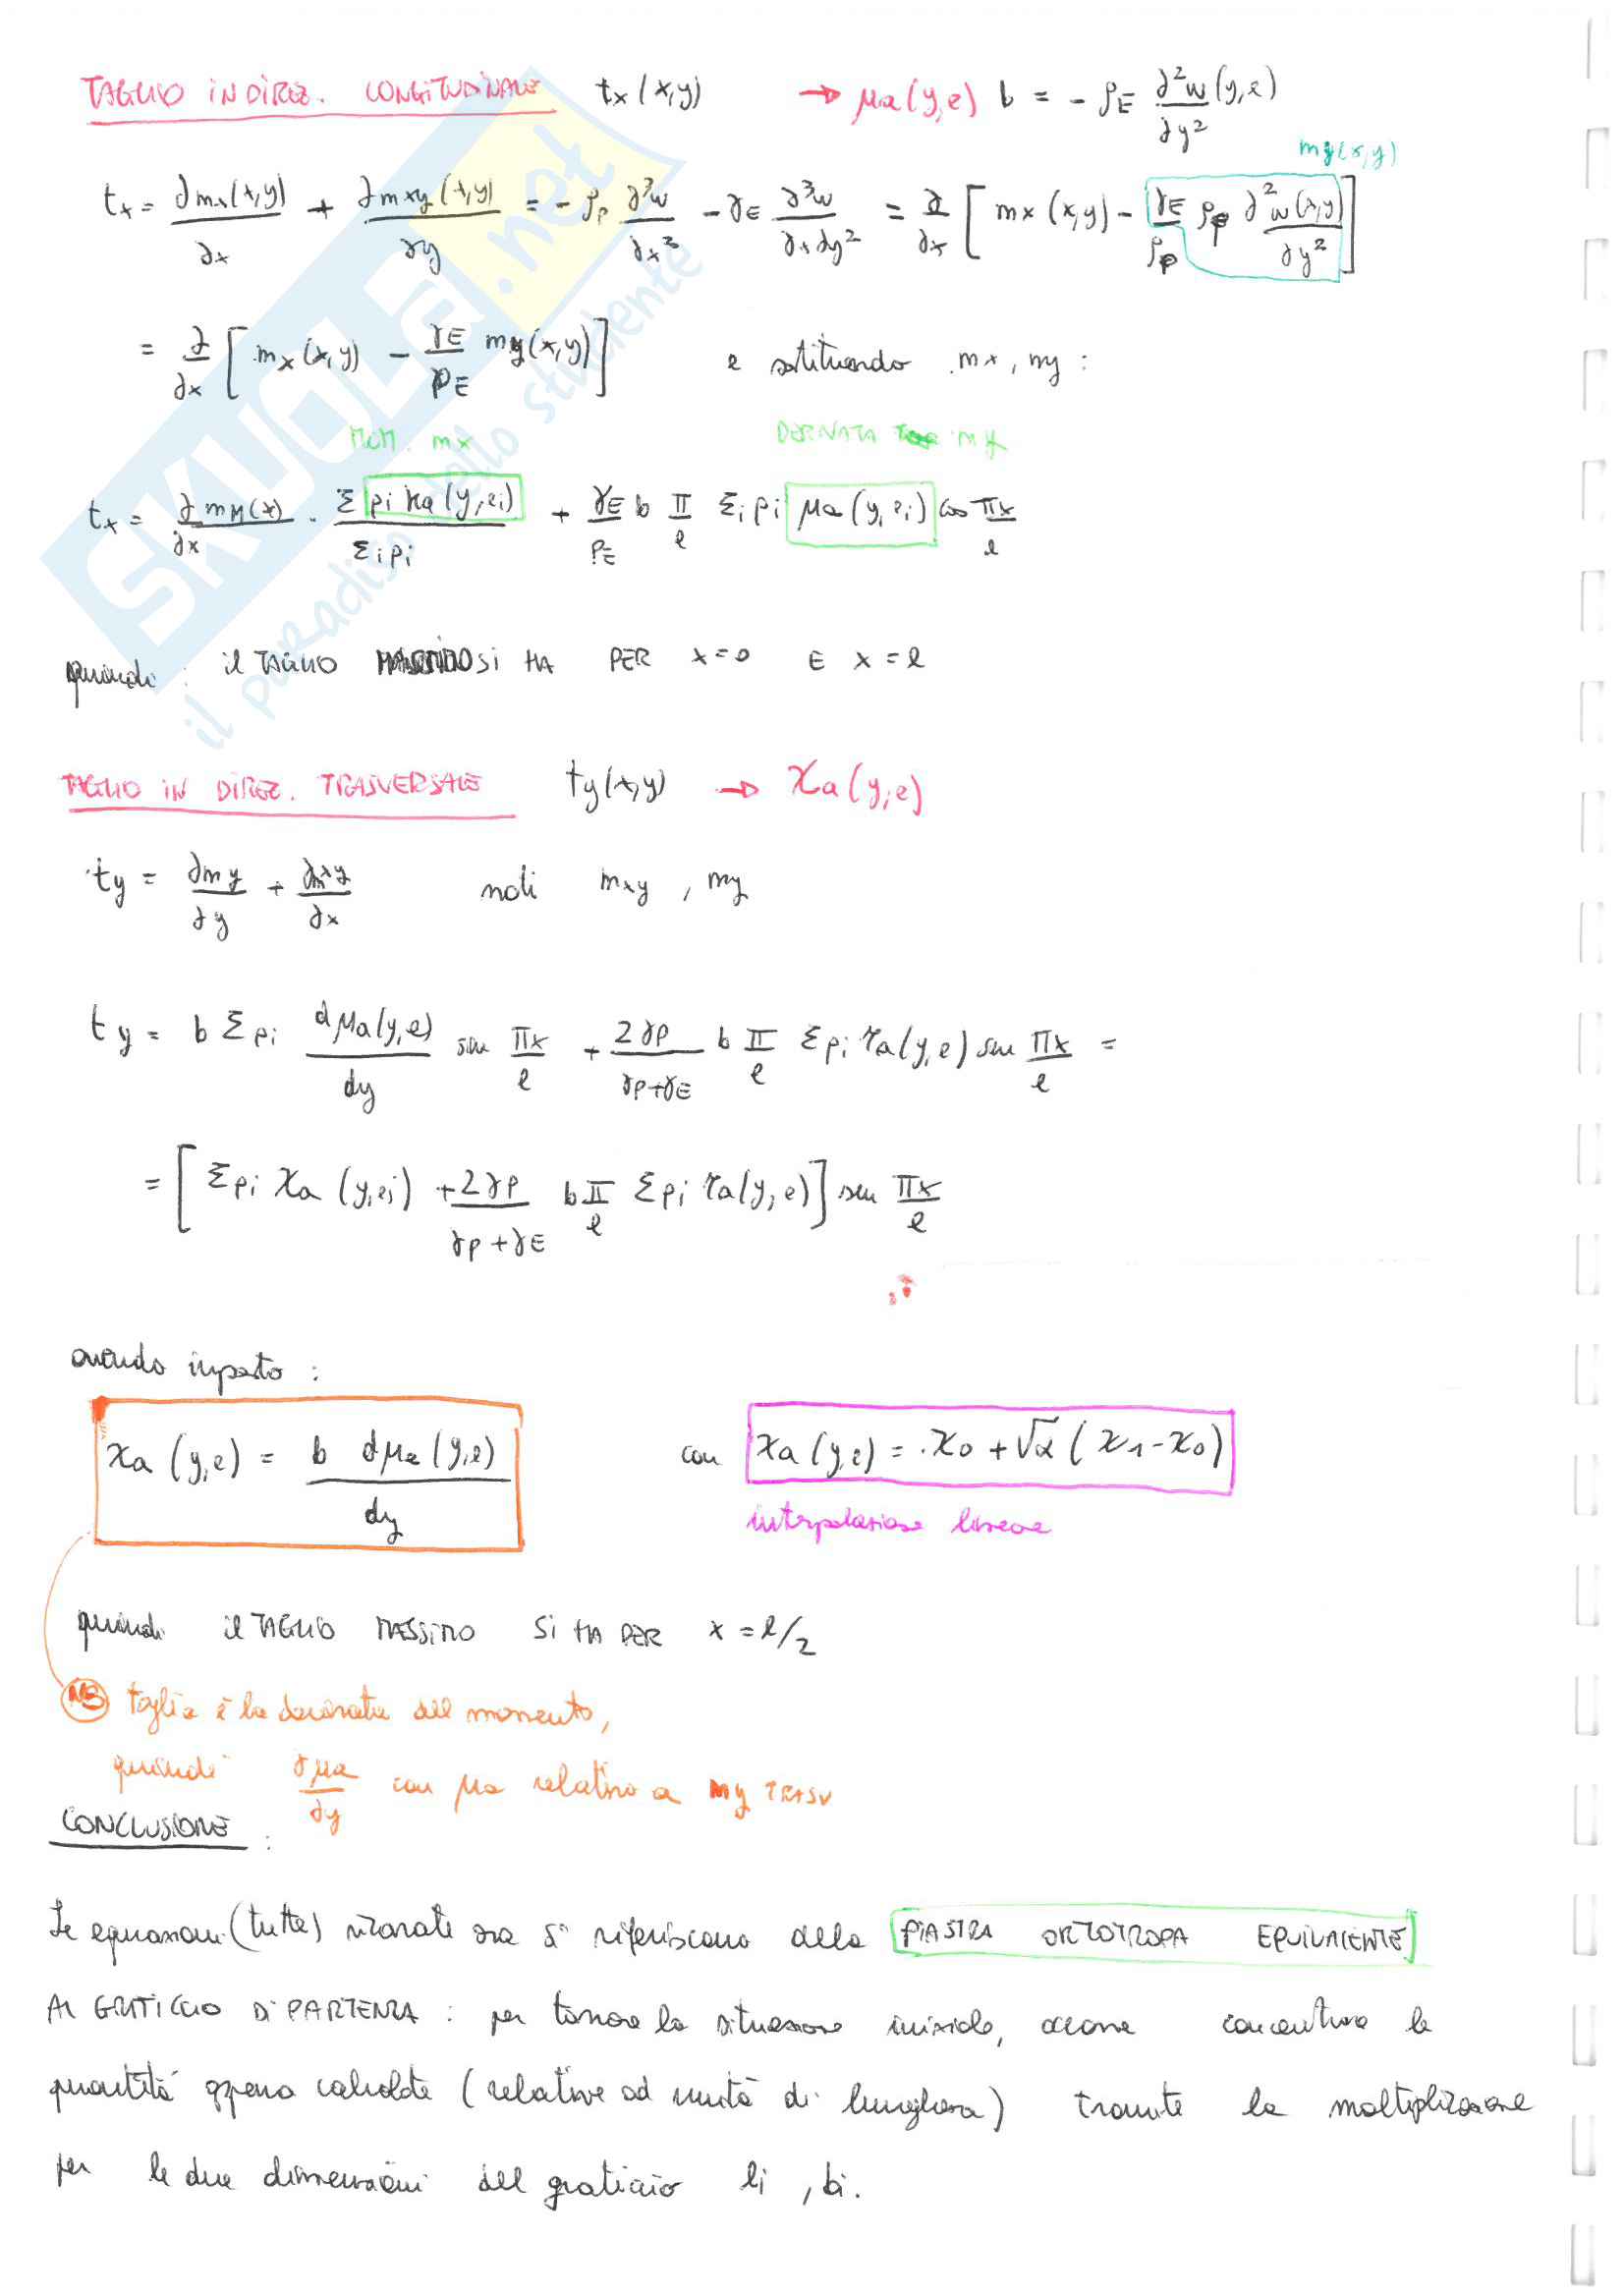 TAGLIO IN DIREZ. LONGITUDINALE tx (x,y) → μa(y,e) b = - ρE ∂²w(y,e)/∂y²
my(x,y)
tx = ∂mx(x,y)/∂x + ∂mxy(x,y)/∂y = - ρp ∂³w/∂x³ - γE ∂³w/∂x∂y² = ∂/∂x [ mx(x,y) - γE/ρp ρp ∂²w(x,y)/∂y² ]
= ∂/∂x [ mx(x,y) - γE/ρE my(x,y) ] e sostituendo mx, my :
MOM. mx DERIVATA my
tx = ∂mM(x)/∂x · Σ pi Ka(y,ei)/Σi pi + γE/ρE b π/l Σi pi μa(y,ei) cos πx/l
quindi : il TAGLIO MASSIMO SI HA PER x=0 E x=l
TAGLIO IN DIREZ. TRASVERSALE ty(x,y) → χa(y,e)
ty = ∂my/∂y + ∂mxy/∂x noti mxy , my
ty = b Σpi dμa(y,e)/dy sen πx/l + 2γp/γp+γE b π/l Σpi τa(y,e) sen πx/l =
= [ Σpi χa (y,ei) + 2γp/γp+γE b π/l Σpi τa(y,e) ] sen πx/l
avendo imposto :
χa (y,e) = b dμa(y,e)/dy con χa (y,e) = χ0 + √α ( χ1-χ0)
interpolazione lineare
quindi il TAGLIO MASSIMO SI HA PER x = l/2
NB taglio è la derivata del momento,
quindi ∂μa/∂y con μa relativo a my TRASV
CONCLUSIONE :
Le equazioni (tutte) ricavate ora si riferiscono alla PIASTRA ORTOTROPA EQUIVALENTE
AL GRATICCIO DI PARTENZA : per tornare la situazione iniziale, occorre concentrare le
quantità appena calcolate ( relative ad unità di lunghezza) tramite la moltiplicazione
per le due dimensioni del graticcio li , bi.
SKUOLA.net
il paradiso dello studente